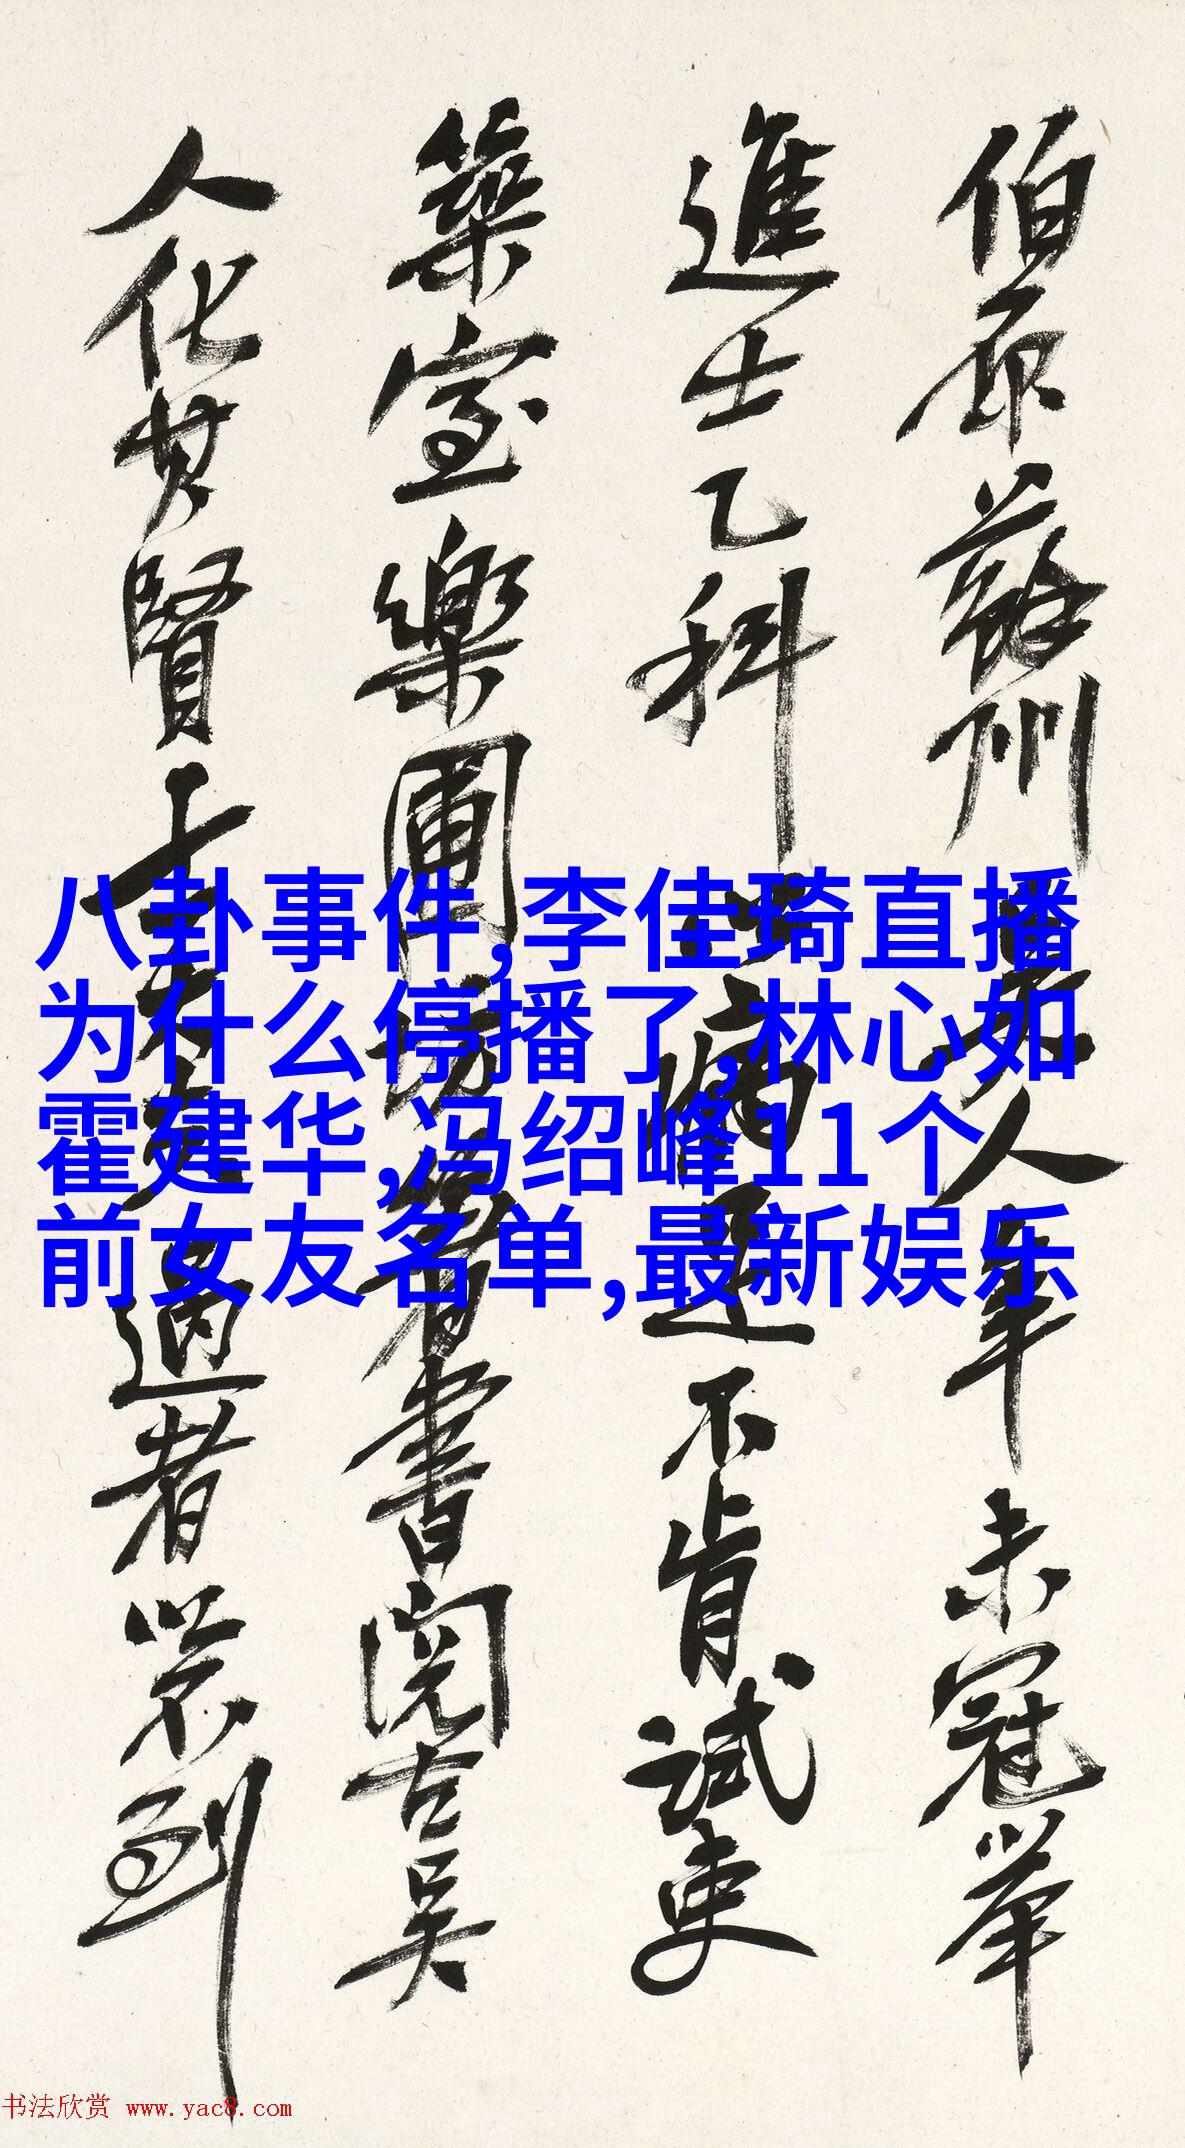 伯原蘇州吳人年未冠舉
進士乙科以病足不肯試吏
築室樂圃坊著書閱古吳
人化其賢士大夫過者以不到
八卦事件,李佳琦直播
为什么停播了,林心如
霍建华,冯绍峰11个
前女友名单,最新娱乐
书法欣赏 www.yac8.com